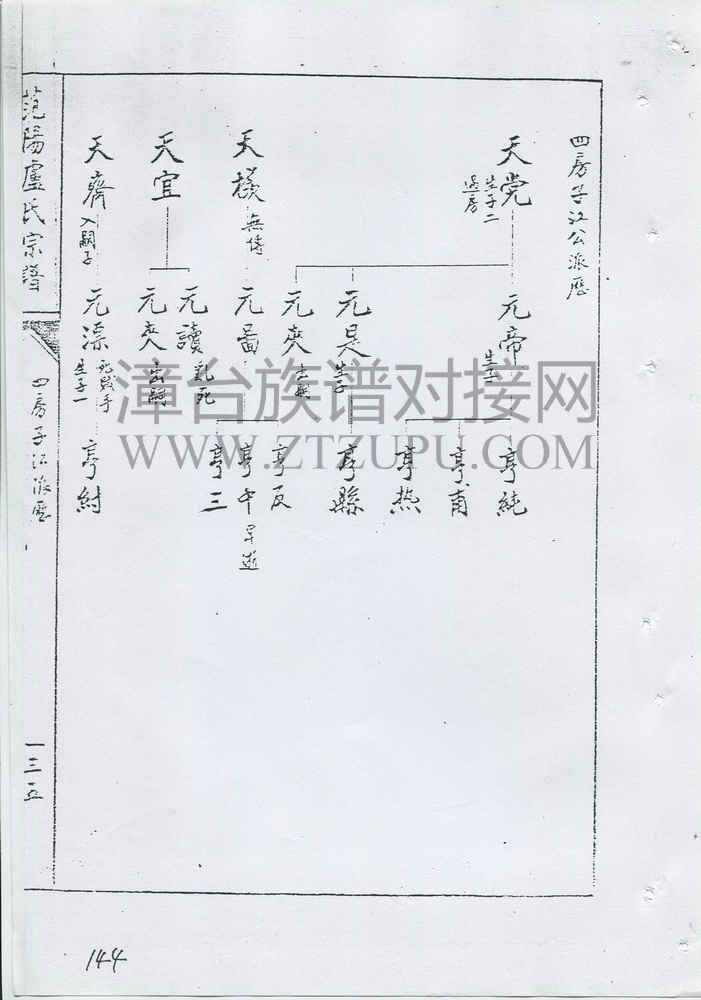 四房子江公派歷
天党
生子二
過房
天橫
無傳
天宜
天齊
入嗣子
元帝
生子二
元昊
生子
元爽
出嗣
元啚
元讀
乱死
元爽
出嗣
元漂
生子一
亨純
亨甫
亨热
亨縣
亨反
亨午
早逝
亨三
亨紂
范陽盧氏宗譜
四房子江派歷
一三五
144
漳台族谱对接网
WWW.ZTZUPU.COM